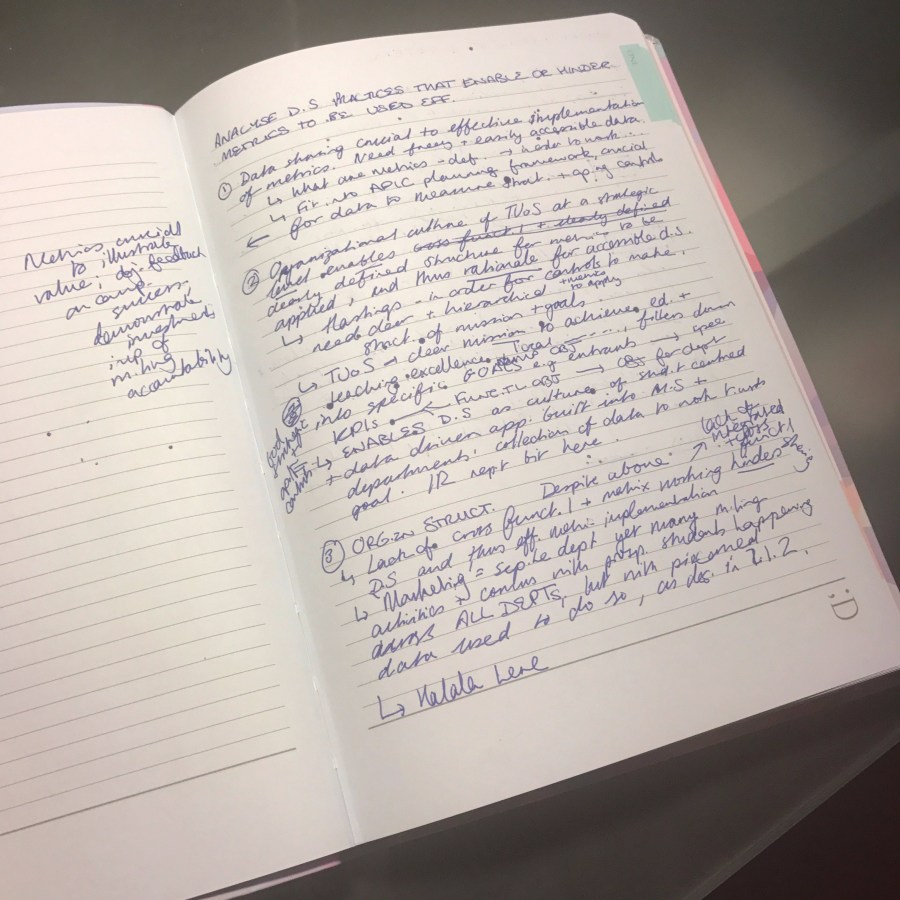 Metrics crucial
to illustrate
value, feedback
on camp.
success,
demonstrate
investment
imp of
m.ting
accountability
ANALYSE D.S PRACTICES THAT ENABLE OR HINDER
METRICS TO BE USED EFF.
① Data sharing crucial to effective implementation
of metrics. Need freq + easily accessible data.
↳ What are metrics - def. → in order to work...
↳ Fit into APIC planning framework, crucial
← for data to measure strat. + op.ing controls
② Organizational culture of TUoS at a strategic
level enables cross funct.l + clearly defined
clearly defined structure for metrics to be
applied, and thus rationale for accessible d.s.
↳ Hastings - in order for controls to make,
needs clear + hierarchical + metrics to apply
struct. of mission + goals.
↳ TUoS → clear mission to achieve ed. +
teaching excellence. filters down
into specific GOALS e.g entrants → spec
KPIs FUNCT.L OBJ → OBJ for dept
↳ ENABLES D.S as culture of stud.t centred
+ data driven app. built into M.S +
department. collection of data to work t.wds
goal. IR rept bit here.
③ ORG.ZN STRUCT. Despite above lack of
integrated
+ cross
funct.l
↳ Lack of cross funct.l + matrix working hinders
D.S and thus eff. metric implementation
↳ Marketing = sep.te dept yet many m.ting
activities + comms with prosp. students happening
across ALL DEPTS, but with piecemeal
data used to do so, as dis. in 2.1.2.
↳ Halala here
:D